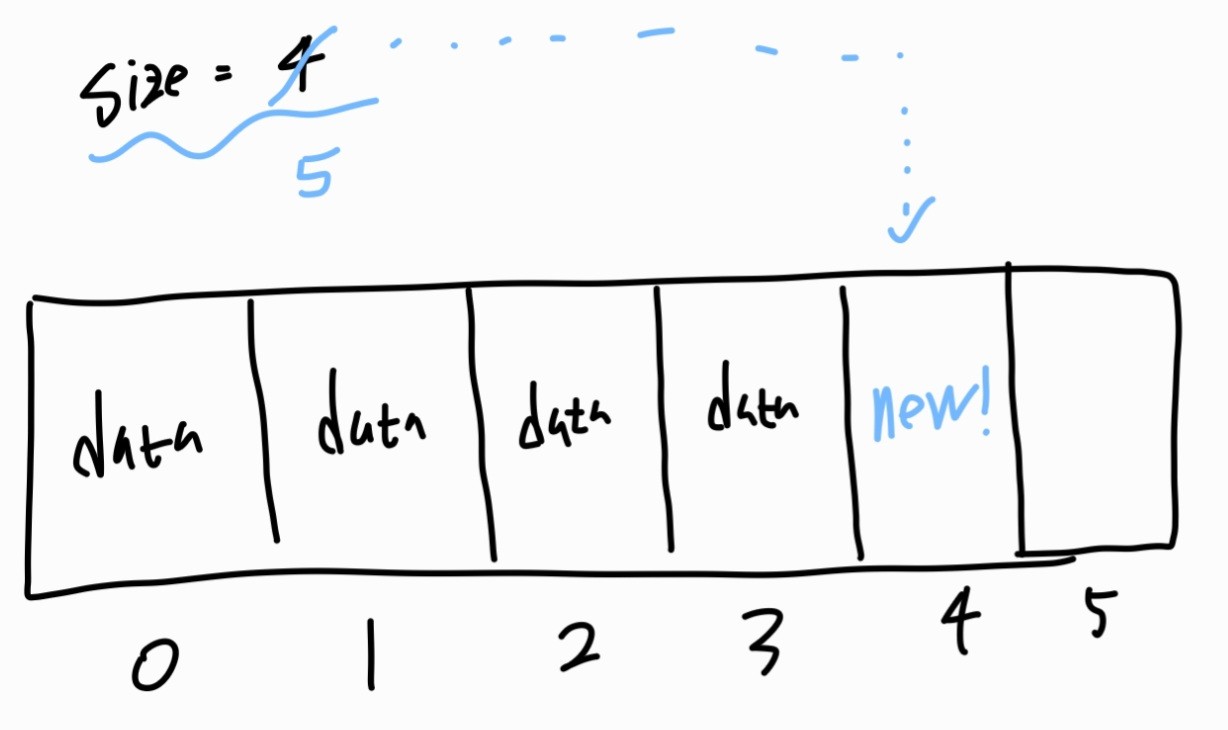 size = 4
5
data data data data new!
0 1 2 3 4 5